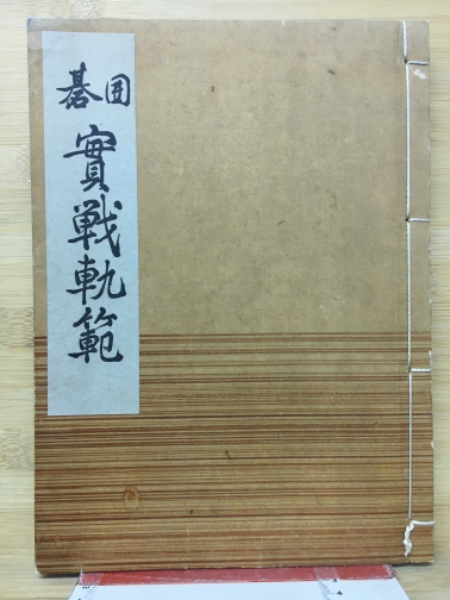 囲碁
實戦軌範